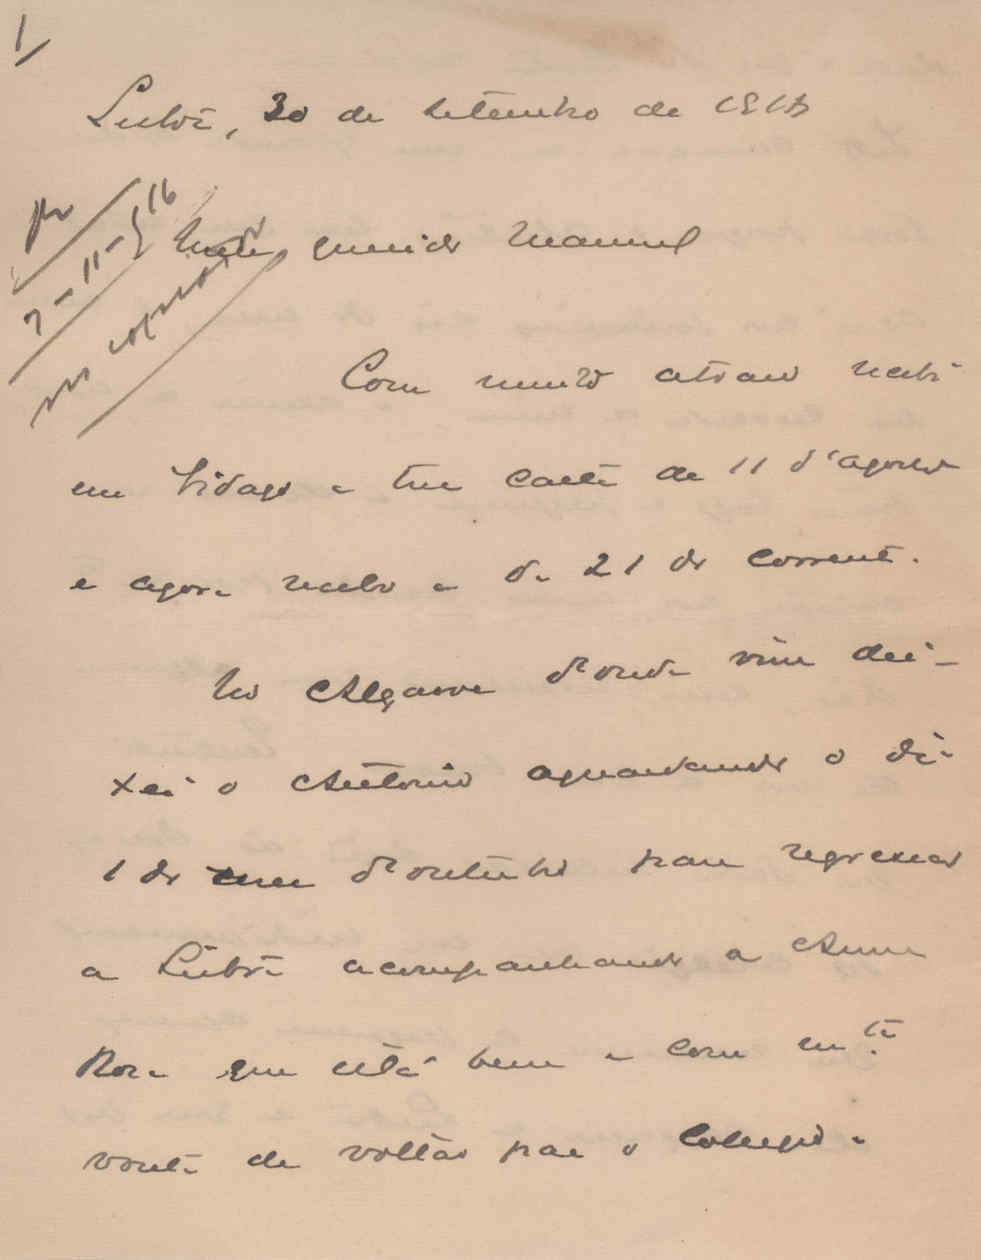 1
Lisboa, 30 de Setembro de 1915
7-11-916
Meu querido Manuel
Com muito atraso recebi
em Vidago a tua carta de 11 d'agosto
e agora recebo a de 21 do corrente.
No Algarve d'onde vim dei-
xei o Antonio aguardando o dia
1 de d'outubro para regressar
a Lisboa acompanhando a Anna
Rosa que está bem e com m.ta
vontade de voltar para o Collegio